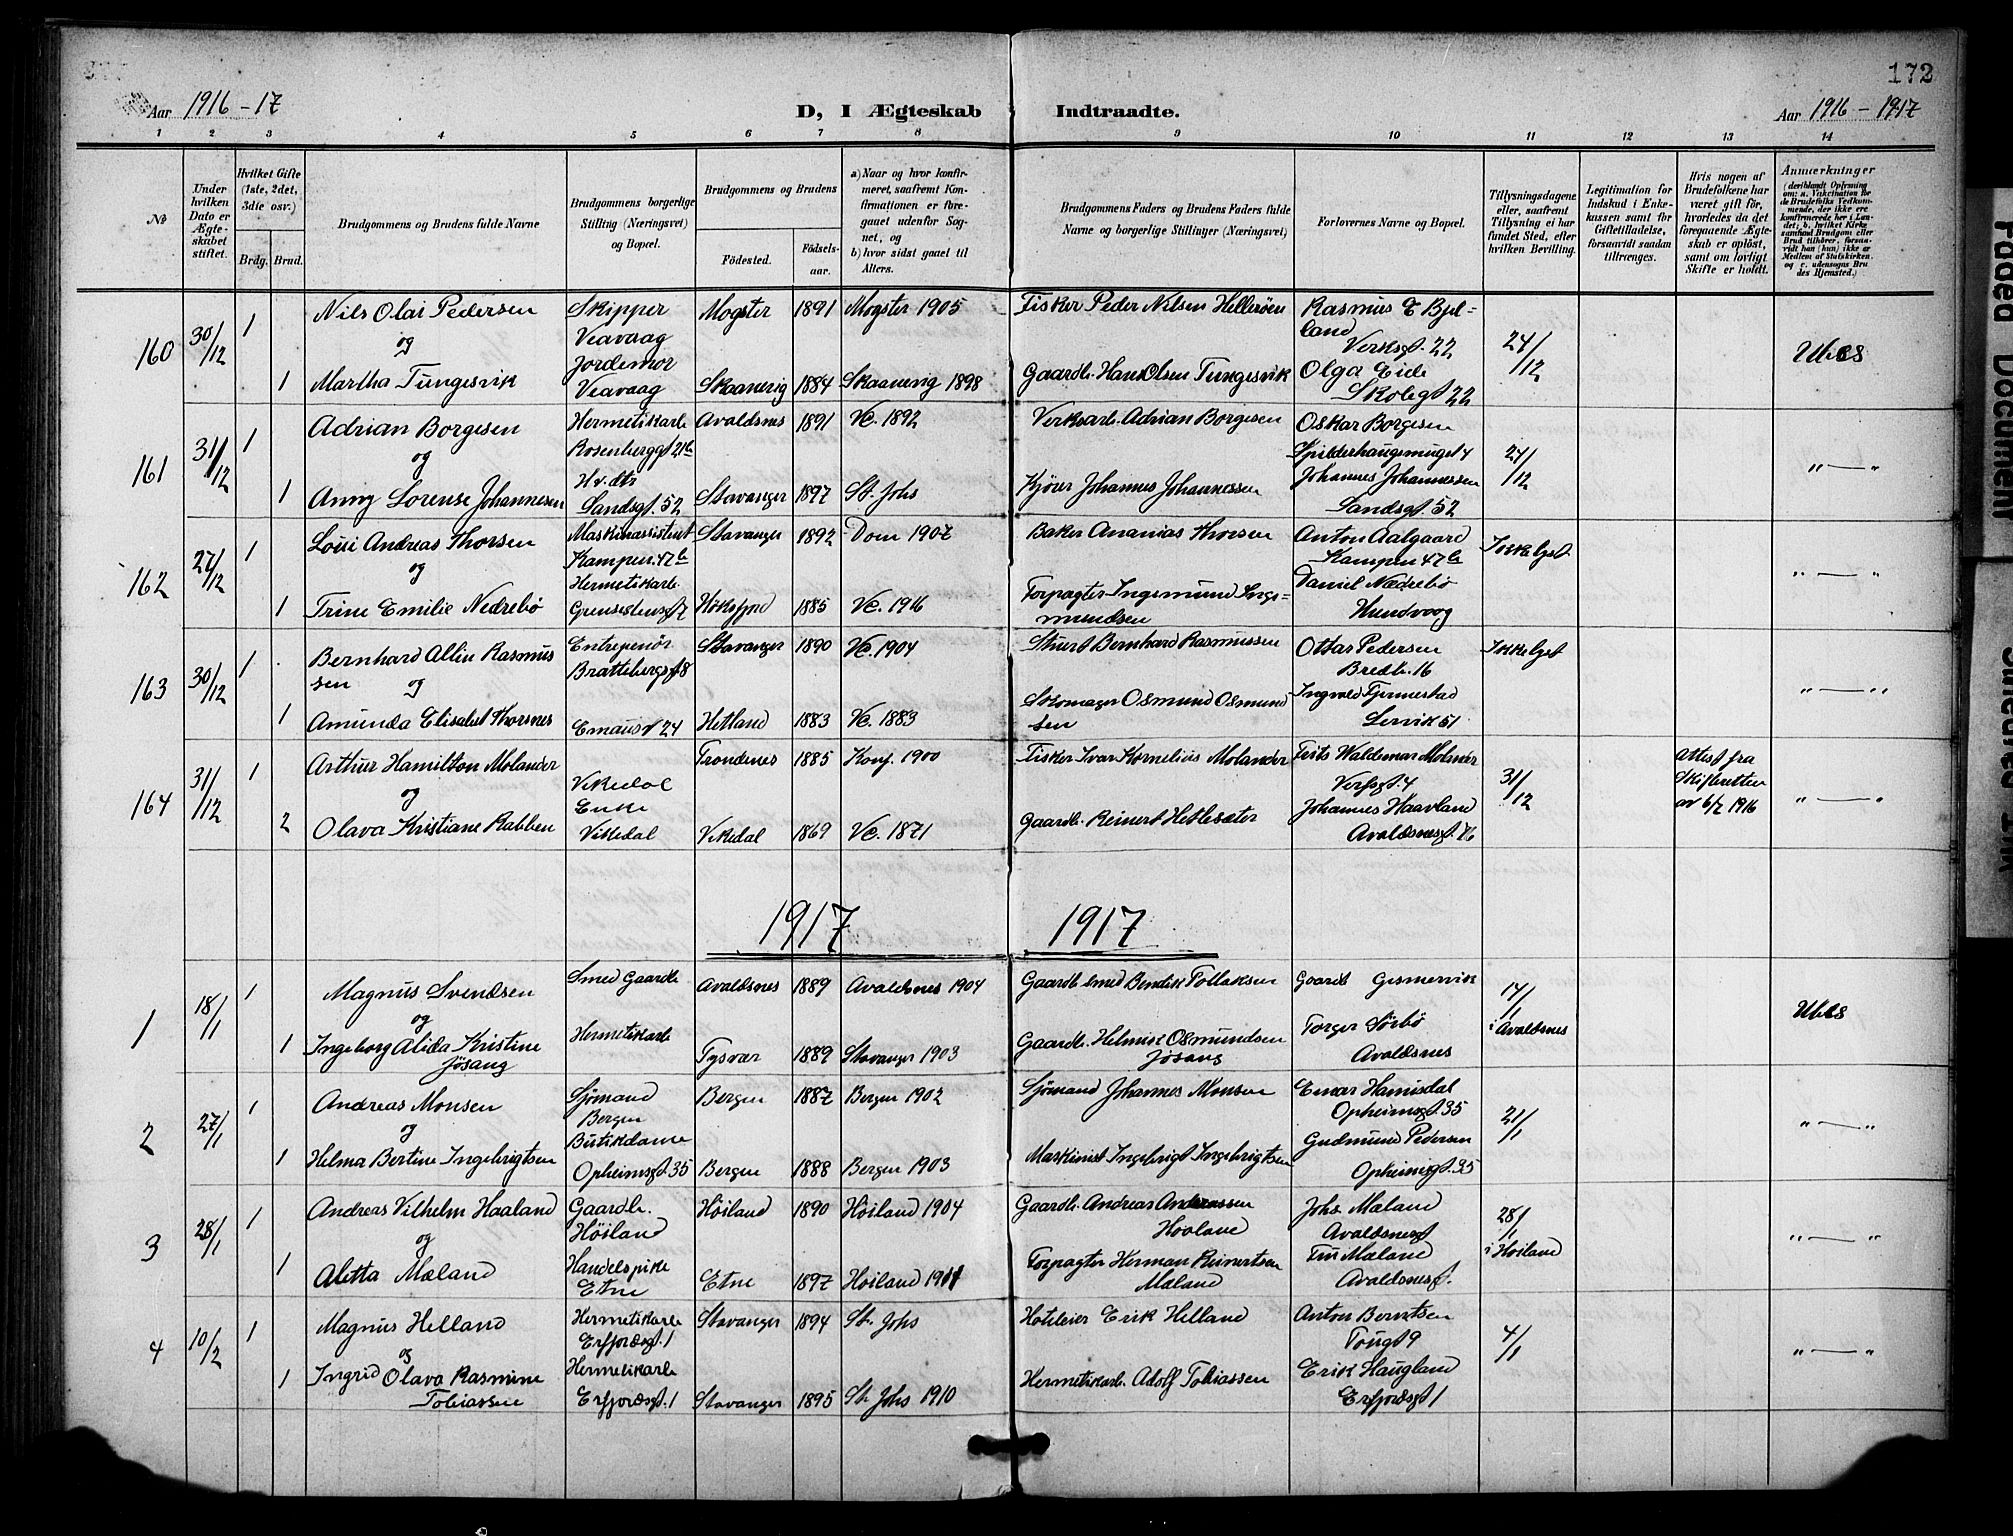 172
Aar 1916-17
D, I Ægteskab Indtraadte.
Aar 1916 - 1917
1 2 3 4 5 6 7 8 9 10 11 12 13 14
No
Under hvilken Dato er Ægteskabet stiftet.
Hvilket Gifte (1ste, 2det, 3die osv.)
Brdg. Brud.
Brudgommens og Brudens fulde Navne
Brudgommens borgerlige Stilling (Næringsvei) og Bopæl.
Brudgommens og Brudens
Fødested.
Fødselsaar.
a) Naar og hvor konfirmeret, saafremt Konfirmationen er foregaaet udenfor Sognet, og
b) hvor sidst gaaet til Alters.
Brudgommens Faders og Brudens Faders fulde Navne og borgerlige Stillinger (Næringsvei)
Forlovernes Navne og Bopæl.
Tillysningsdagene eller, saafremt Tillysning ei har fundet Sted, efter hvilken Bevilling.
Legitimation for Indskud i Enkekassen samt for Giftetilladelse, forsaavidt saadan tiltrænges.
Hvis nogen af Brudefolkene har været gift før, hvorledes da det foregaaende Ægteskab er opløst, samt om lovligt Skifte er holdt.
Anmerkninger
160 30/12 1 Nils Olai Pedersen Skipper Veavaag Mogster 1891 Mogster 1905 Fisker Peder Nilsen Hellerøen Rasmus E Bjelland Verksgt. 22 24/12
og
1 Martha Tungesvik Jordemor Veavaag Skaanevig 1884 Skaanevig 1898 Gaardb. Hans Olsen Tungesvik Olga Eide Skolegt 22
161 31/12 1 Adrian Borgesen Hermetikarb Rosenberggt 21b Avaldsnes 1891 Vc. 1892 Verksarb. Adrian Borgesen Oskar Borgesen Spilderhaugsmuget 4 24/12 "—"
og
1 Anny Lorense Johannesen Hv. dtr Sandsgt. 52 Stavanger 1897 St. Johs Kjører Johannes Johannessen Johannes Johannessen Sandsgt. 52
162 27/12 1 Andreas Thorsen Maskinassistent Kampen 47b Stavanger 1892 Dom 1907 Baker Ananias Thorsen Anton Aalgaard Kampen 47b Ikke lyst "—"
og
1 Trine Emilie Nedrebø Hermetikarb Høksfjord 1885 Vc. 1916 Forpagter Ingemund Ingemundsen Daniel Nædrebø Hundvaag
163 30/12 1 Bernhard Rasmussen Entrepenør Brattebergsgt 8 Stavanger 1890 Vc. 1904 Stuert Bernhard Rasmussen Ottar Pedersen Bredb. 16 Ikke lyst "—"
og
1 Amunda Elisabet Thorsnes Emausgt 24 Hetland 1883 Vc. 1883 Skomager Osmund Osmundsen Ingvald Tjermestad
164 31/12 1 Arthur Hamilton Molander Vikedal Trondenes 1885 Konf. 1900 Fisker Ivar Kornelius Molander Frits Waldemar 31/12 Attest fra Skifteretten av 6/7 1916 "—"
og
2 Olava Kristiane Rabben Enke Vikedal Vikedal 1869 Vc. 1871 Gaardb. Reinert Hetlesæter Johannes Haavland Avaldsnesgt.
1917 1917
1 18/1 1 Magnus Svendsen Smed Gaardb Avaldsnes 1889 Avaldsnes 1904 Gaardb Smed Bendik Tollaksen Gaardb Gismervik 14/1 i Avaldsnes
og
1 Ingeborg Alida Kristine Jøsang Hermetikarb Tysvær 1889 Stavanger 1903 Gaardb. Helmik Osmundsen Jøsang Torger Sørbø Avaldsnes
2 27/1 1 Andreas Monsen Sjømand Bergen Bergen 1887 Bergen 1902 Sjømand Johannes Monsen Einar Opheimsgt. 35 21/1 "—"
og
1 Helma Bertine Ingebrigtsen Butikdame Opheimsgt. 35 Bergen 1888 Bergen 1903 Maskinist Ingebrigt Ingebrigtsen Gudmund Pedersen Opheimsgt. 35
3 28/1 1 Andreas Vilhelm Haaland Gaardb. Høiland Høiland 1890 Høiland 1904 Gaardb. Andreas Andreassen Haaland Johs Mæland Avaldsnesgt 28/1 i Høiland "—"
og
1 Aletta Mæland Handelspike Etne Etne 1897 Høiland 1911 Forpagter Herman Reinertsen Mæland Mæland Avaldsnesgt.
4 10/2 1 Magnus Helland Hermetikarb Erfjordsgt. 1 Stavanger 1894 St. Johs Hoteleier Erik Helland Anton Berntsen Tougt 9 4/1 "—"
og
1 Ingrid Olava Rasmine Tobiassen Hermetikarb Erfjordsgt. 1 Stavanger 1895 St. Johs 1910 Hermetikarb. Adolf Tobiassen Erik Haugland Erfjordsgt 1
Faded Document